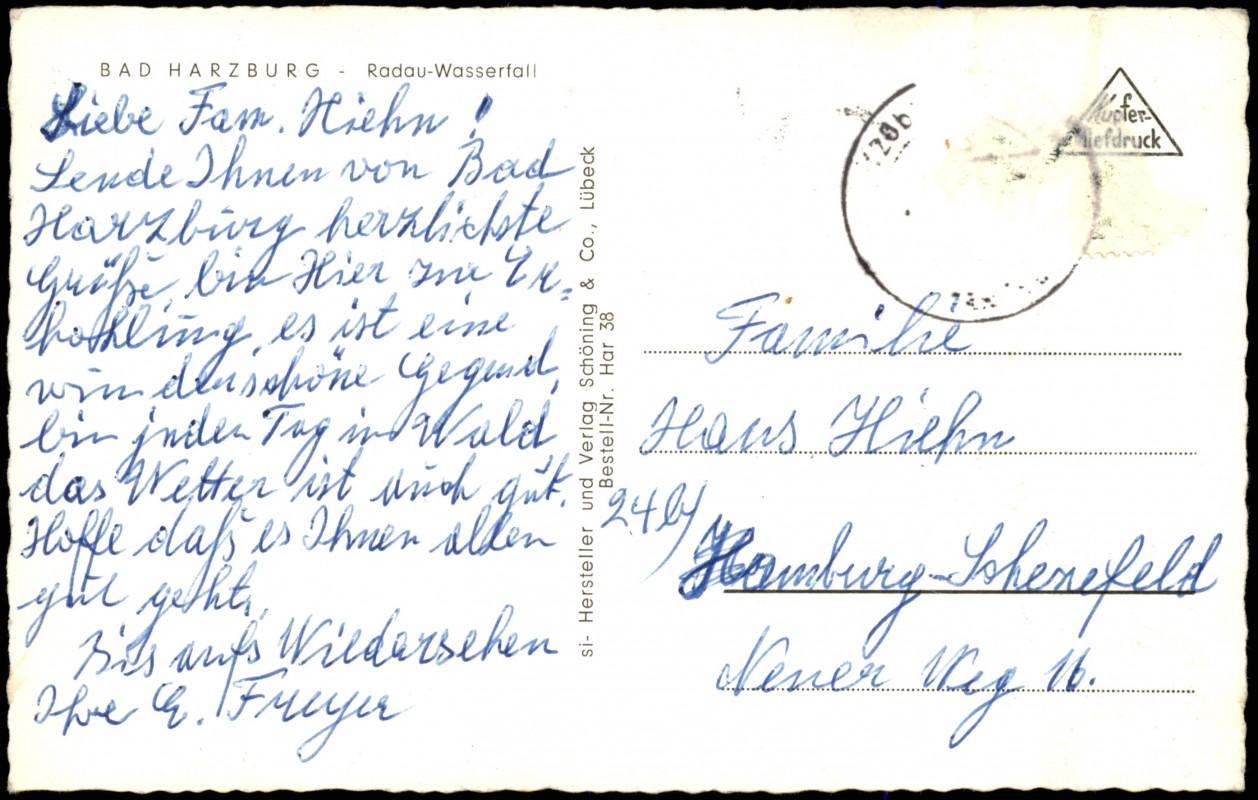 BAD HARZBURG - Radau-Wasserfall
Liebe Fam. Hiehn!
Sende Ihnen von Bad
Harzburg herzlichste
Grüße, bin Hier zur Er=
hohlung, es ist eine
wunderschöne Gegend,
bin jeden Tag im Wald,
das Wetter ist auch gut.
Hoffe daß es Ihnen allen
gut geht,
Bis aufs Wiedersehen
Ihre E. Freyer
si- Hersteller und Verlag Schöning & Co., Lübeck
Bestell-Nr. Har 38
Kupfer-
tiefdruck
Familie
Hans Hiehn
24b/
Hamburg-Schenefeld
Neuer Weg 16.